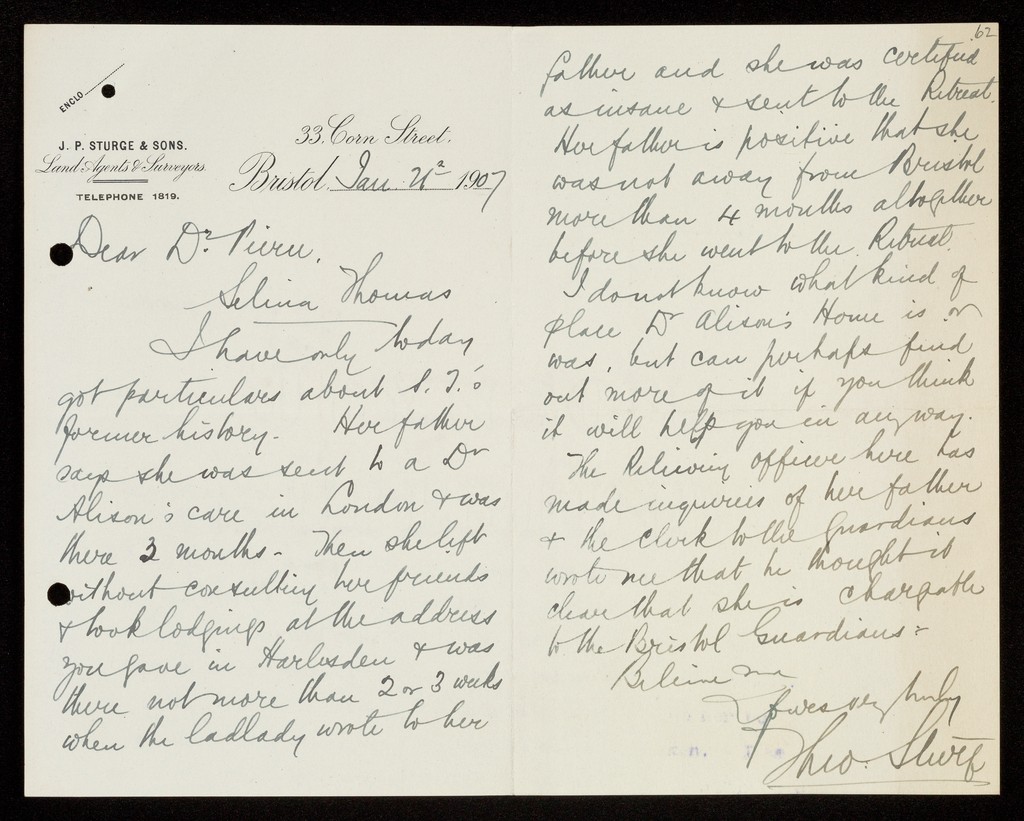 ENCLO
J. P. STURGE & SONS.
Land Agents & Surveyors.
TELEPHONE 1819.
33, Corn Street,
Bristol Jan. 21st 1907
Dear Dr. Pierce,
Selina Thomas
I have only today
got particulars about S. T.'s
former history. Her father
says she was sent to a Dr
Alison's care in London & was
there 3 months. Then she left
without consulting her friends
& took lodgings at the address
you gave in Harlesden & was
there not more than 2 or 3 weeks
when the ladlady wrote to her
62
father and she was certified
as insane & sent to the Retreat.
Her father is positive that she
was not away from Bristol
more than 4 months altogether
before she went to the Retreat.
I do not know what kind of
place Dr Alison's Home is or
was, but can perhaps find
out more of it if you think
it will help you in any way.
The Relieving officer here has
made inquiries of her father
& the Clerk to the Guardians
wrote me that he thought it
clear that she is chargeable
to the Bristol Guardians:-
Believe me
Yours very truly
Theo. Sturge